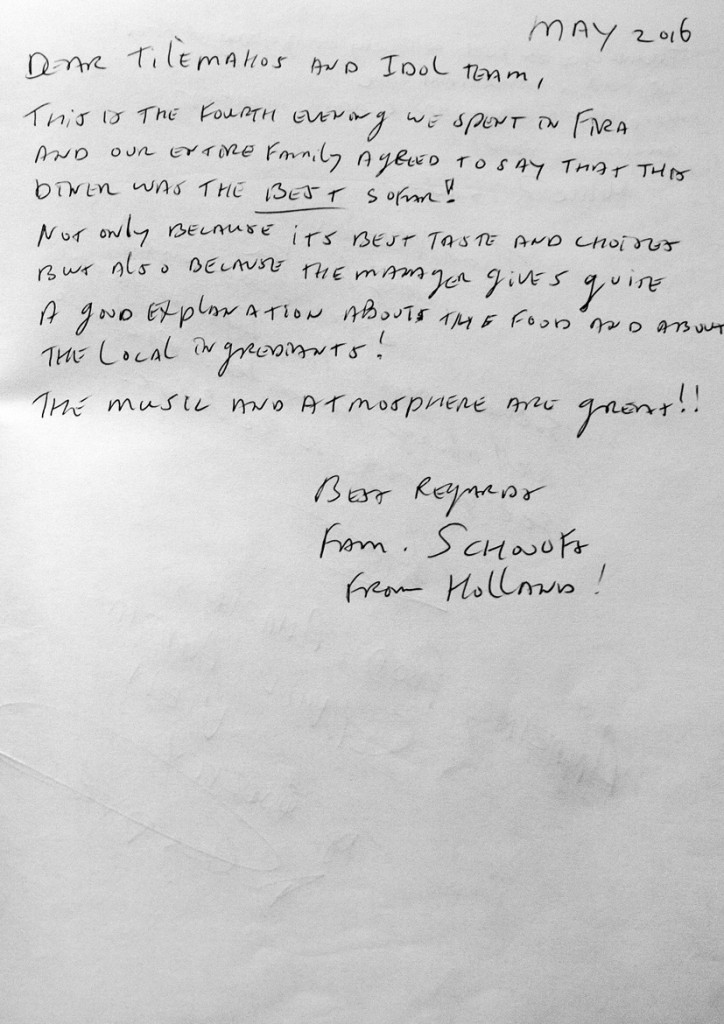 MAY 2016
DEAR TILEMAHOS AND IDOL TEAM,
THIS IS THE FOURTH EVENING WE SPENT IN FIRA
AND OUR ENTIRE FAMILY AGREED TO SAY THAT THIS
DINER WAS THE BEST SOFAR!!
NOT ONLY BECAUSE ITS BEST TASTE AND CHOISES
BUT ALSO BECAUSE THE MANAGER GIVES QUITE
A GOOD EXPLANATION ABOUTS THE FOOD AND ABOUT
THE LOCAL INGREDIANTS!
THE MUSIC AND ATMOSPHERE ARE GREAT!!
BEST REGARDS
FAM.
FROM HOLLAND!